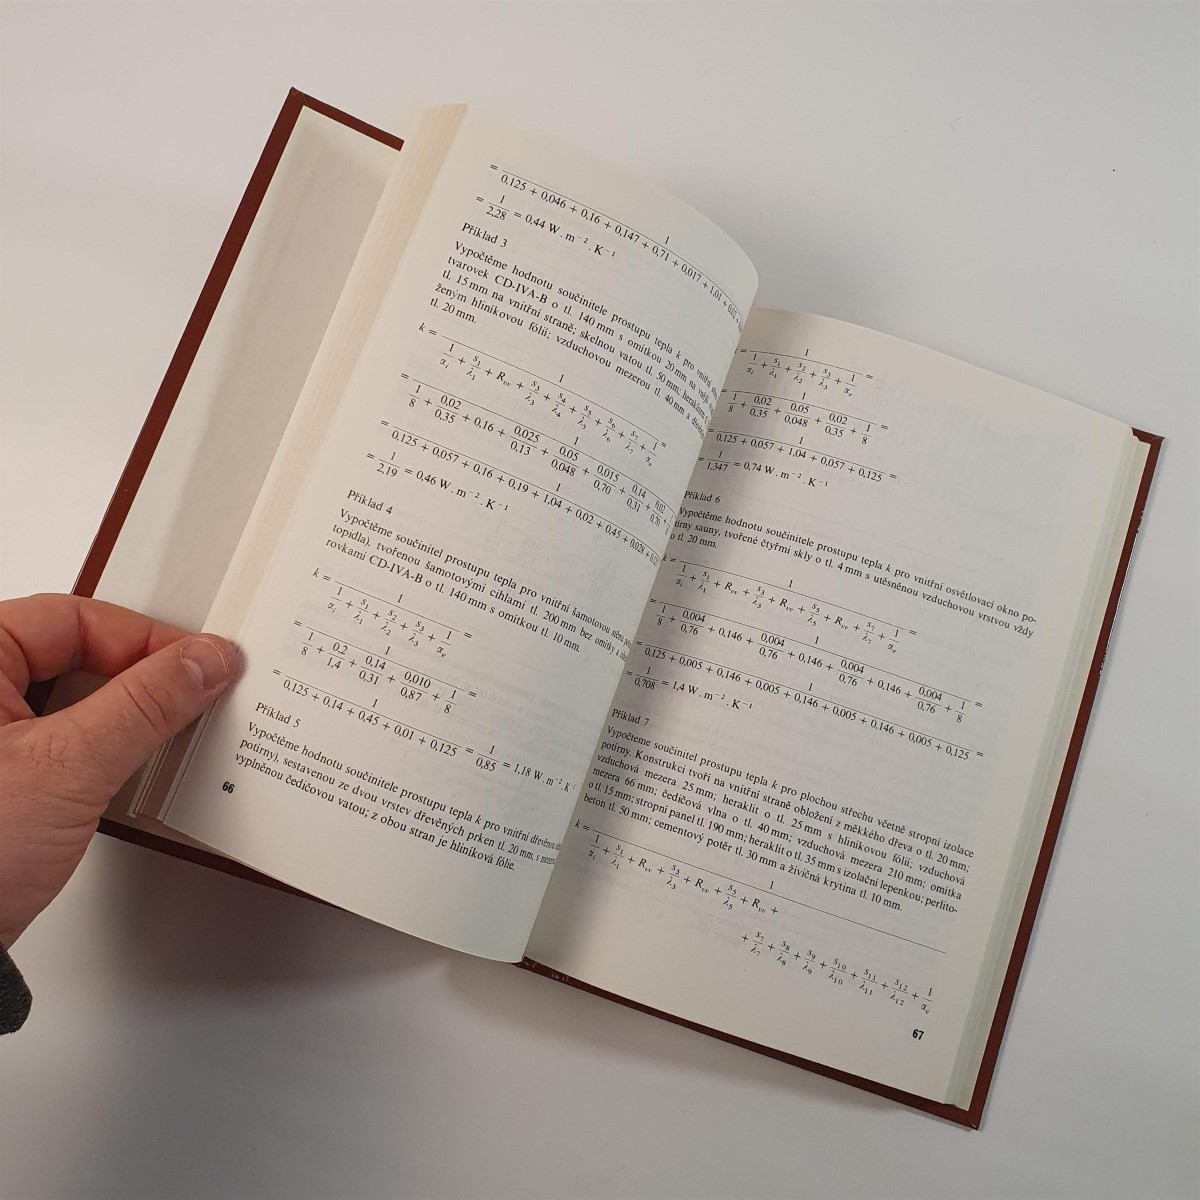 = 1 / 0,125 + 0,046 + 0,16 + 0,147 + 0,71 + 0,017 + 1,01 + 0,03 +
= 1/2,28 = 0,44 W . m⁻² . K⁻¹
Příklad 3
Vypočtěme hodnotu součinitele prostupu tepla k pro vnitřní
tvarovek CD-IVA-B o tl. 140 mm s omítkou 20 mm na vnější
tl. 15 mm na vnitřní straně; skelnou vatou tl. 50 mm; heraklitem
ženým hliníkovou fólií; vzduchovou mezerou tl. 40 mm a
tl. 20 mm.
k = 1 / 1/αᵢ + s₁/λ₁ + Rᵥᵥ + s₃/λ₃ + s₄/λ₄ + s₅/λ₅ + s₆/λ₆ + s₇/λ₇ + 1/αₑ =
= 1 / 1/8 + 0,02/0,35 + 0,16 + 0,025/0,13 + 0,05/0,048 + 0,015/0,70 + 0,14/0,31 + 0,02/0,76 +
= 1 / 0,125 + 0,057 + 0,16 + 0,19 + 1,04 + 0,02 + 0,45 + 0,026 +
= 1/2,19 = 0,46 W . m⁻² . K⁻¹
Příklad 4
Vypočtěme součinitel prostupu tepla pro vnitřní šamotovou stěnu
topidla), tvořenou šamotovými cihlami tl. 200 mm bez omítky a
rovkami CD-IVA-B o tl. 140 mm s omítkou tl. 10 mm.
k = 1 / 1/αᵢ + s₁/λ₁ + s₂/λ₂ + s₃/λ₃ + 1/αₑ =
= 1 / 1/8 + 0,2/1,4 + 0,14/0,31 + 0,010/0,87 + 1/8 =
= 1 / 0,125 + 0,14 + 0,45 + 0,01 + 0,125 = 1/0,85 = 1,18 W . m⁻² . K⁻¹
Příklad 5
Vypočtěme hodnotu součinitele prostupu tepla k pro vnitřní dřevěnou
potírny), sestavenou ze dvou vrstev dřevěných prken tl. 20 mm, s
vyplněnou čedičovou vatou; z obou stran je hliníková fólie.
66
1 / 1/αᵢ + s₁/λ₁ + s₂/λ₂ + s₃/λ₃ + 1/αₑ =
= 1 / 1/8 + 0,02/0,35 + 0,05/0,048 + 0,02/0,35 + 1/8 =
= 1 / 0,125 + 0,057 + 1,04 + 0,057 + 0,125 =
= 1/1,347 = 0,74 W . m⁻² . K⁻¹
Příklad 6
Vypočtěme hodnotu součinitele prostupu tepla k pro vnitřní osvětlovací okno po-
tírny sauny, tvořené čtyřmi skly o tl. 4 mm s utěsněnou vzduchovou vrstvou vždy
o tl. 20 mm.
k = 1 / 1/αᵢ + s₁/λ₁ + Rᵥᵥ + s₃/λ₃ + Rᵥᵥ + s₅/λ₅ + Rᵥᵥ + s₇/λ₇ + 1/αₑ =
= 1 / 1/8 + 0,004/0,76 + 0,146 + 0,004/0,76 + 0,146 + 0,004/0,76 + 0,146 + 0,004/0,76 + 1/8 =
= 1 / 0,125 + 0,005 + 0,146 + 0,005 + 0,146 + 0,005 + 0,146 + 0,005 + 0,125 =
= 1/0,708 = 1,4 W . m⁻² . K⁻¹
Příklad 7
Vypočteme součinitel prostupu tepla k pro plochou střechu včetně stropní izolace
potírny. Konstrukci tvoří na vnitřní straně obložení z měkkého dřeva o tl. 20 mm;
vzduchová mezera 25 mm; heraklit o tl. 25 mm s hliníkovou fólií; vzduchová
mezera 66 mm; čedičová vlna o tl. 40 mm; vzduchová mezera 210 mm; omítka
o tl. 15 mm; stropní panel tl. 190 mm; heraklit o tl. 35 mm s izolační lepenkou; perlito-
beton tl. 50 mm; cementový potěr tl. 30 mm a živičná krytina tl. 10 mm.
k = 1 / 1/αᵢ + s₁/λ₁ + Rᵥᵥ + s₃/λ₃ + Rᵥᵥ + s₅/λ₅ + Rᵥᵥ +
+ s₇/λ₇ + s₈/λ₈ + s₉/λ₉ + s₁₀/λ₁₀ + s₁₁/λ₁₁ + s₁₂/λ₁₂ + 1/αₑ
67